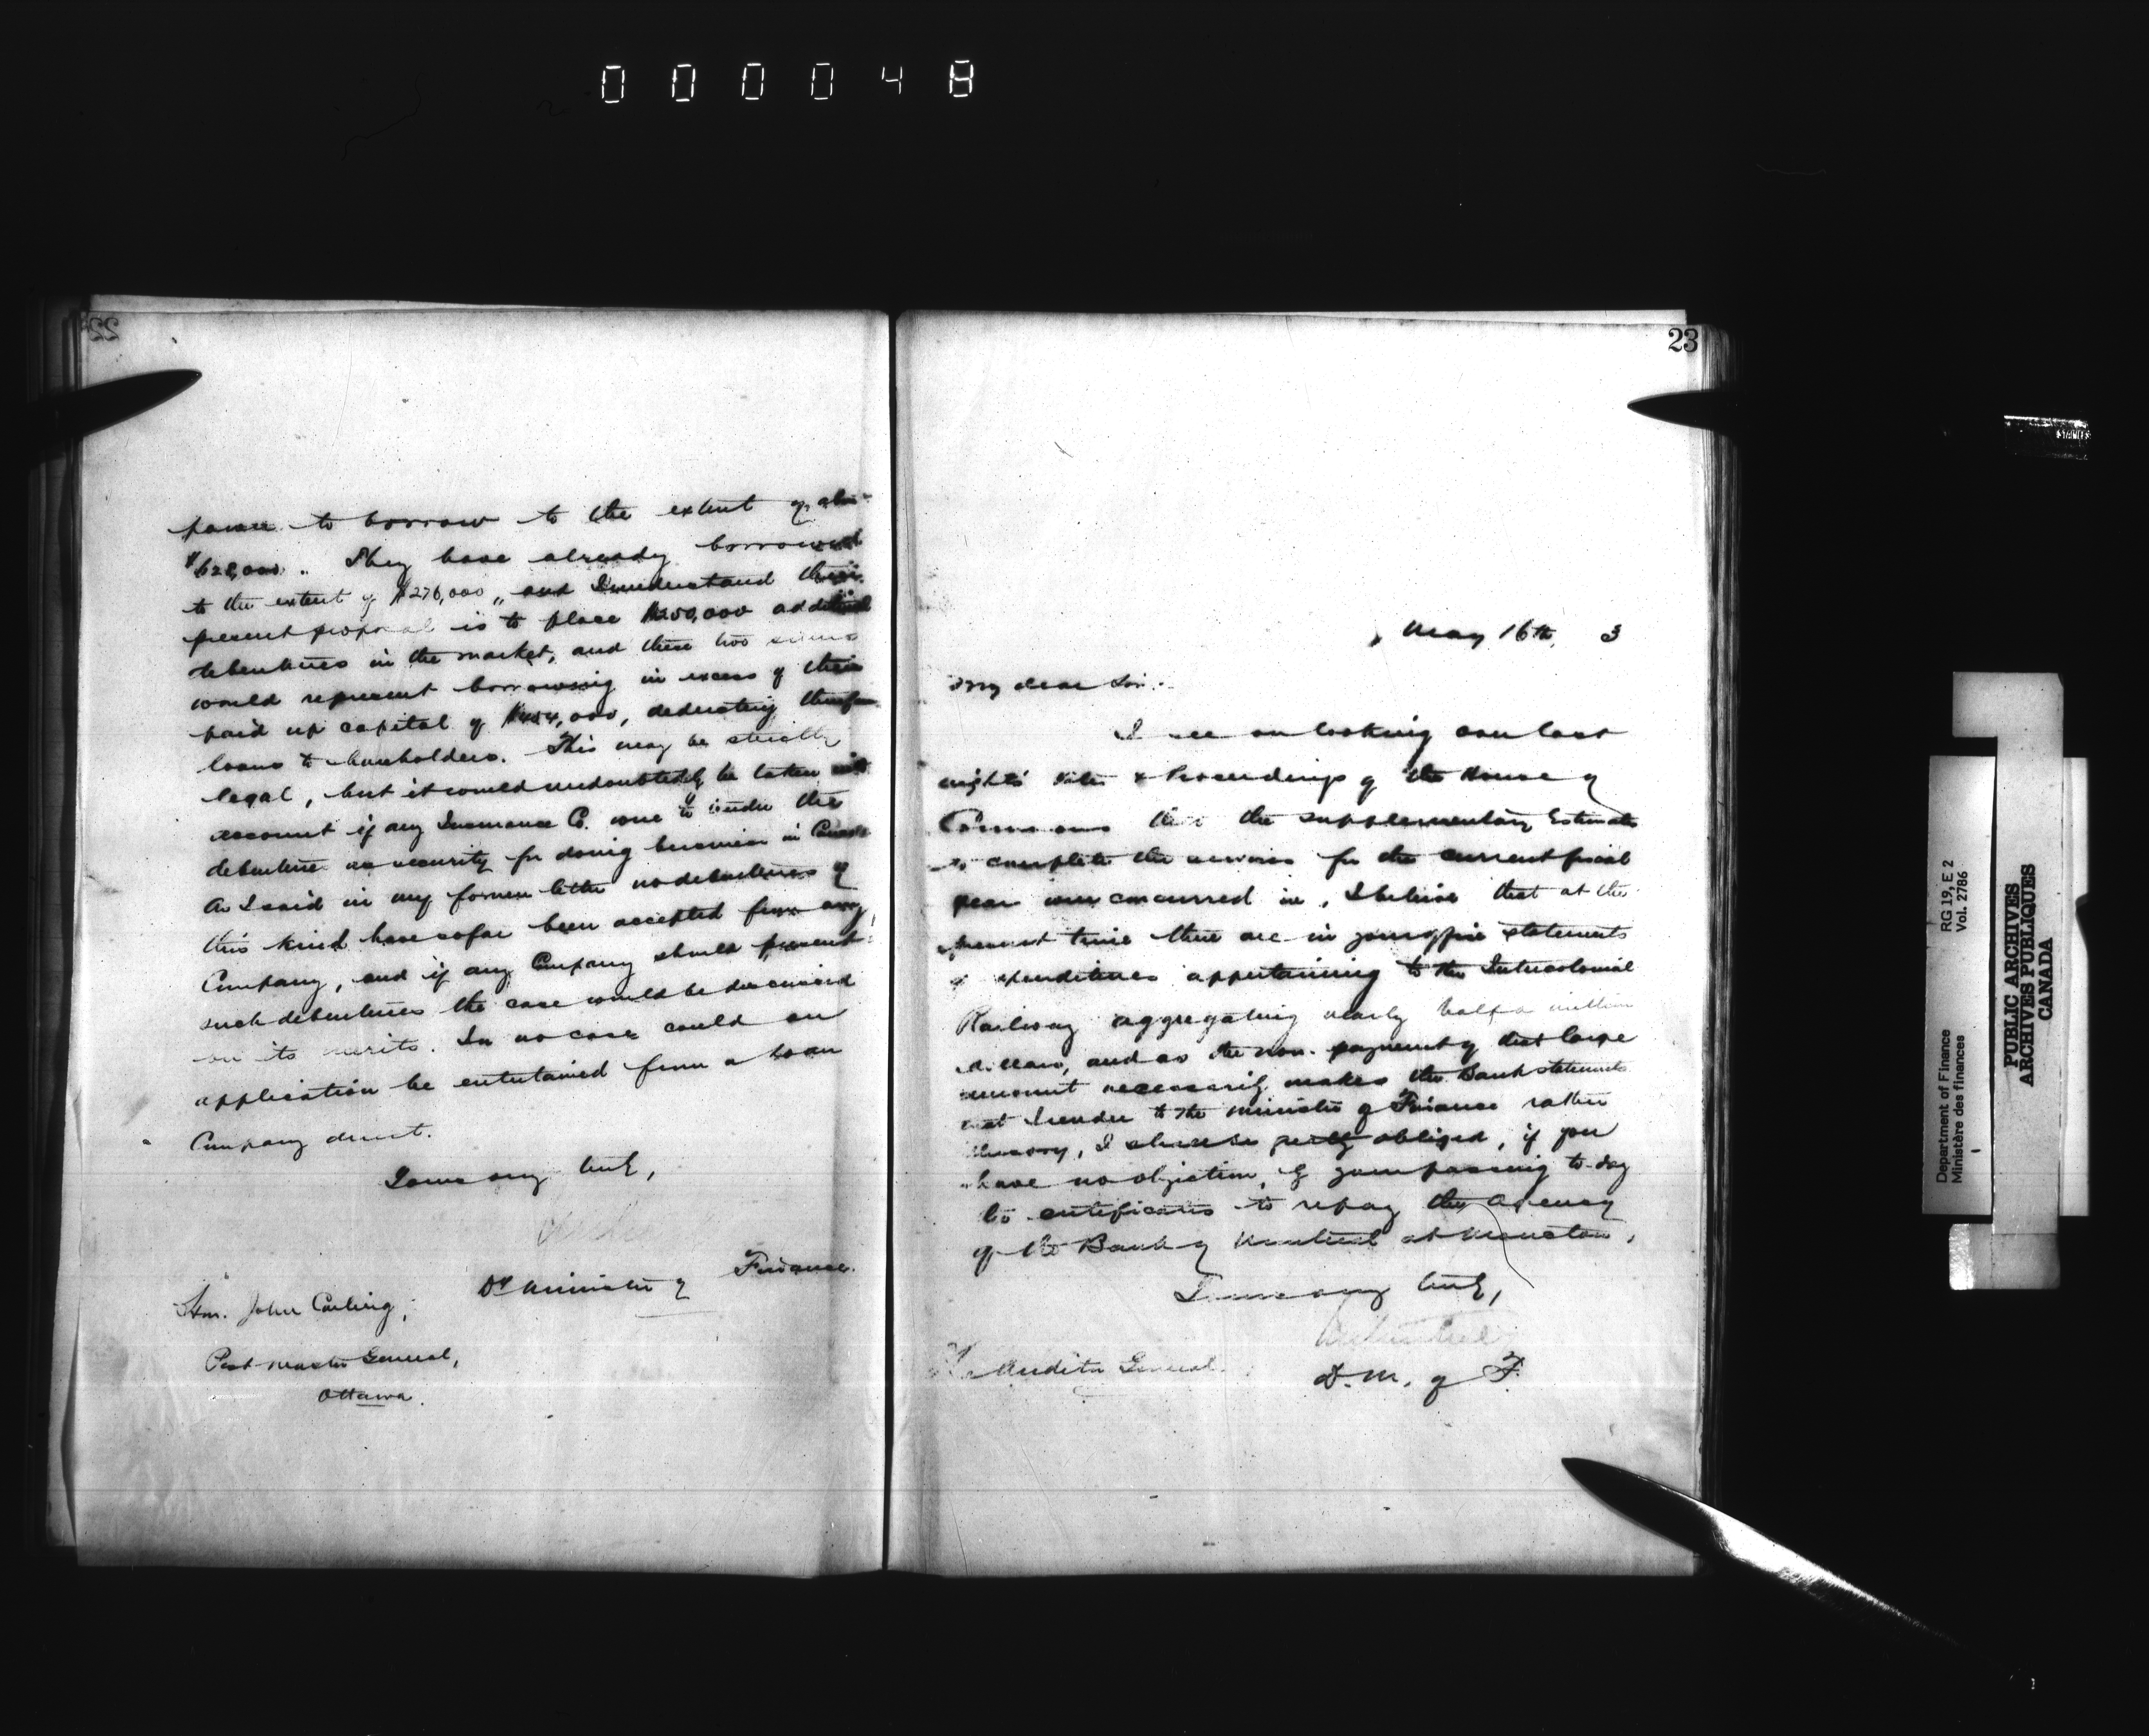 000048
22
power to borrow to the extent of
$628,000. They have already borrowed
to the extent of $276,000, and I understand their
present proposal is to place $250,000 additional
debentures in the market, and these two sums
would represent borrowing in excess of their
paid up capital of $454,000, deducting therefrom
loans to shareholders. This may be strictly
legal, but it would undoubtedly be taken into
account if any Insurance Co. were to tender the
debentures as security for doing business in Canada
As I said in my former letter no debentures of
this kind have so far been accepted from any
Company, and if any Company should present
such debentures the case would be discussed
on its merits. In no case could an
application be entertained from a Loan
Company direct.
Yours very truly,
Dy Minister of Finance.
Hon. John Carling,
Post Master General,
Ottawa.
23
May 16th, 3
My dear Sir:-
I see on looking over last
night's Votes & Proceedings of the House of
Commons that the supplementary Estimates
to complete the services for the current fiscal
year were concurred in. I believe that at the
present time there are in your office statements
of expenditures appertaining to the Intercolonial
Railway aggregating nearly half a million
dollars, and as the non-payment of that large
amount necessarily makes the Bank statements
that I render to the Minister of Finance rather
, I should be greatly obliged, if you
have no objection, of your passing to-day
to certificates to repay the Agency
of the Bank of Montreal at Moncton.
Yours very truly,
D. M. of F.
Auditor General.
STAINLES
Department of Finance
Ministère des finances
RG 19, E 2
Vol. 2786
PUBLIC ARCHIVES
ARCHIVES PUBLIQUES
CANADA